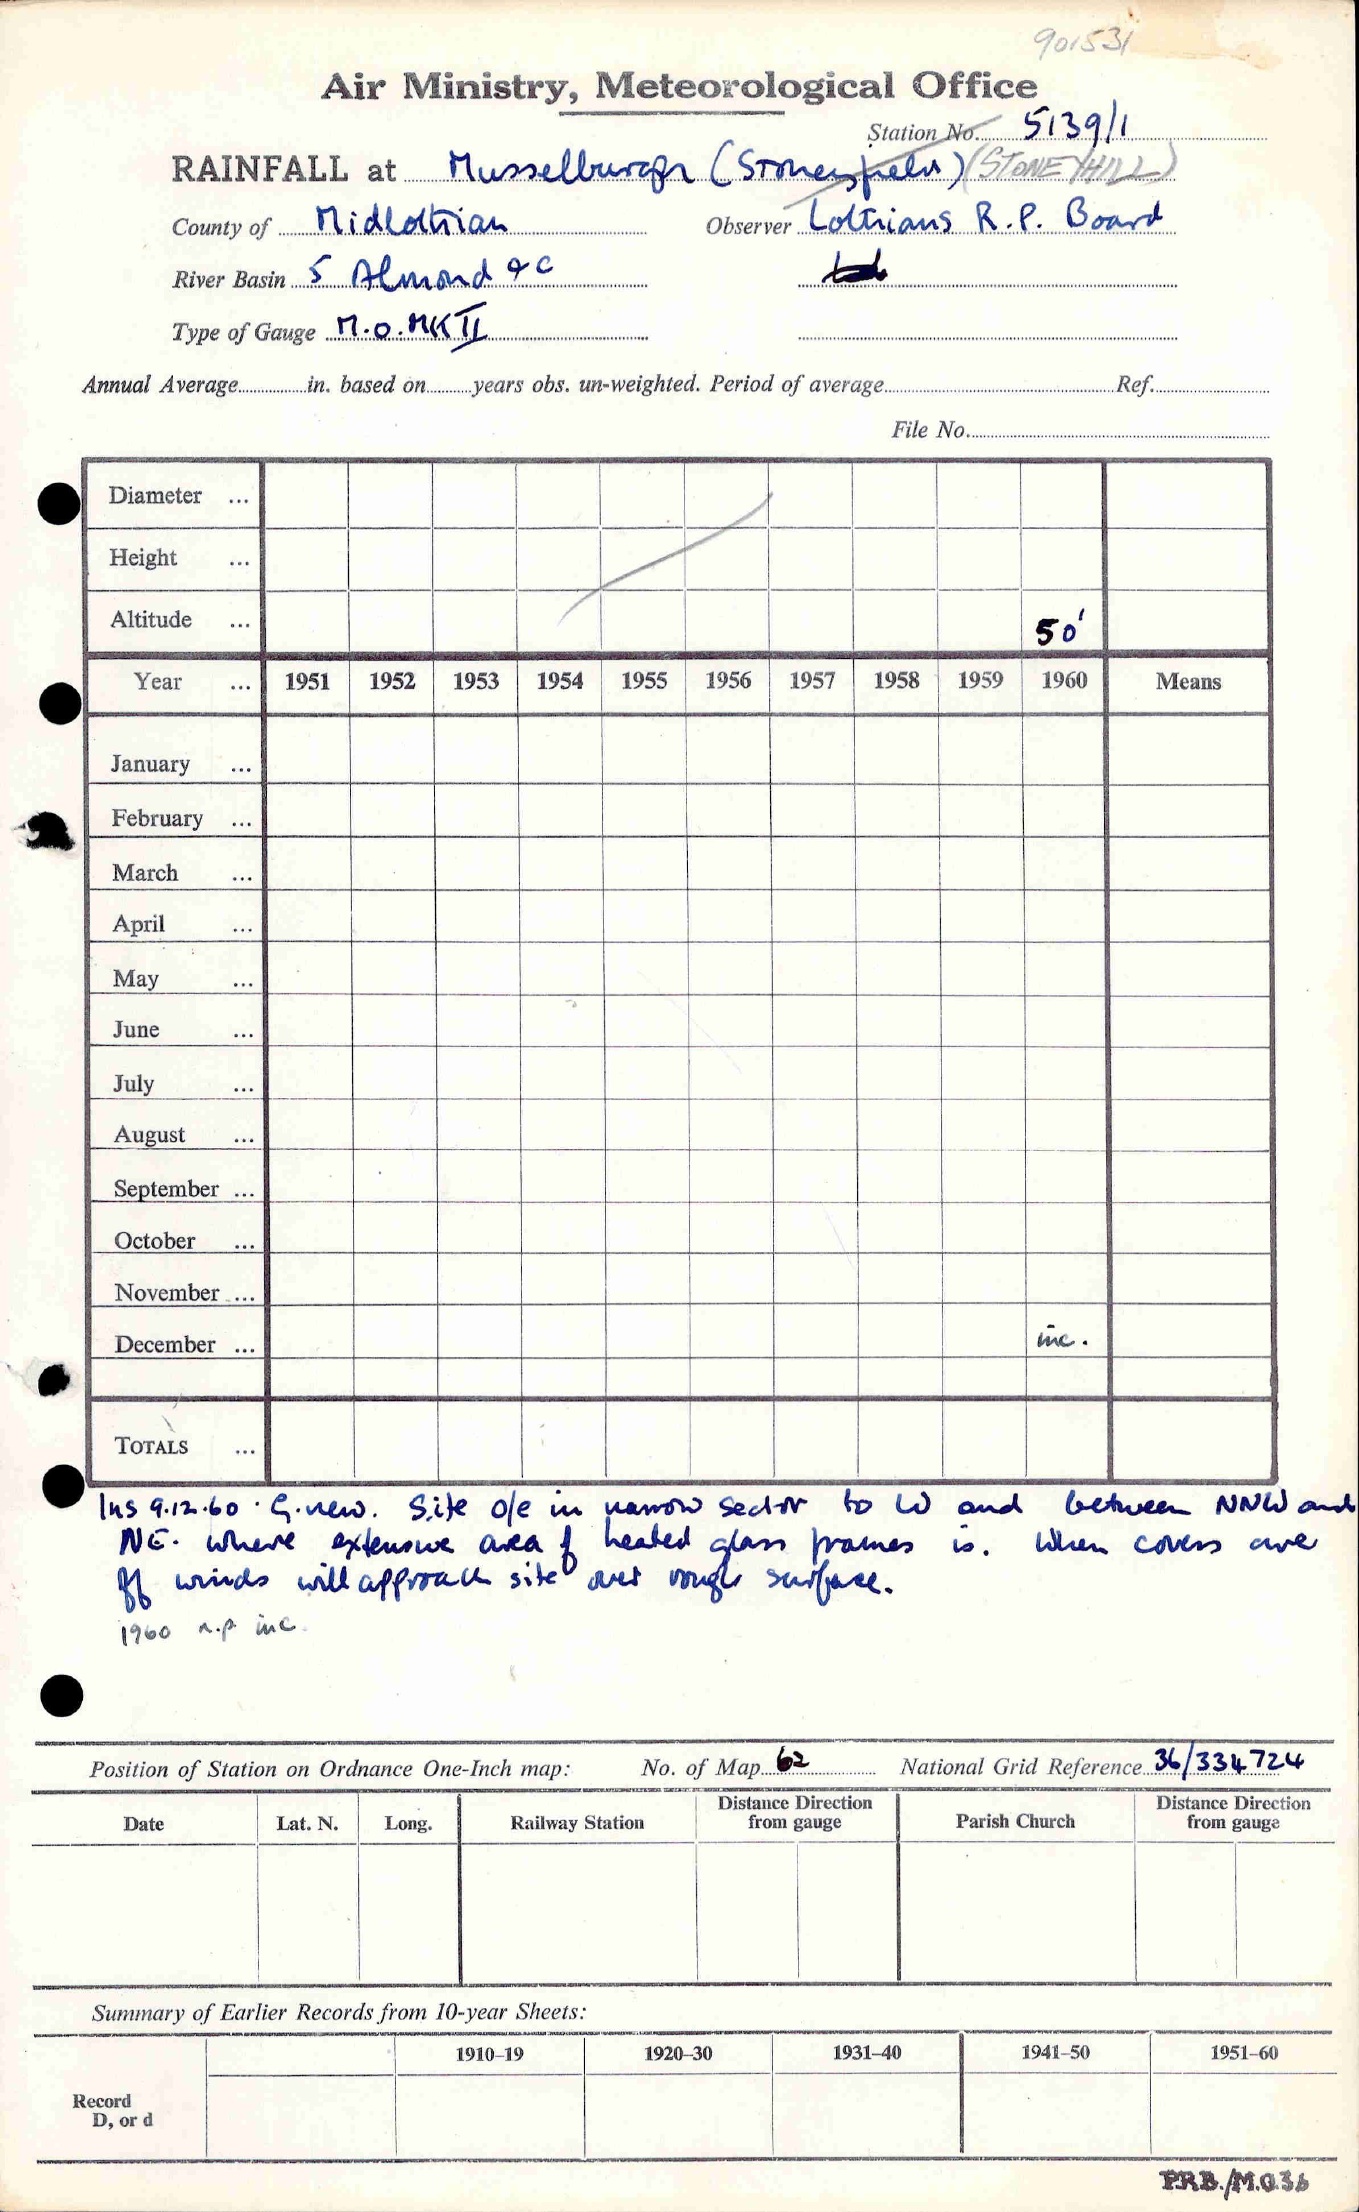 901531
Air Ministry, Meteorological Office
Station No. 5139/1
RAINFALL at Musselburgh (Stoneyfield) (STONEYHILL)
County of Midlothian Observer Lothians R.P. Board
River Basin 5 Almond &c
Type of Gauge M.O. MK II
Annual Average in. based on years obs. un-weighted. Period of average Ref.
File No.
Diameter ...
Height ...
Altitude ... 50'
Year ... 1951 1952 1953 1954 1955 1956 1957 1958 1959 1960 Means
January ...
February ...
March ...
April ...
May ...
June ...
July ...
August ...
September ...
October ...
November ...
December ... inc.
TOTALS ...
Ins 9.12.60. G. new. Site o/e in narrow sector to W and between NNW and
NE. where extensive area of heated glass frames is. When covers are
off winds will approach site over rough surface.
1960 n.p inc.
Position of Station on Ordnance One-Inch map: No. of Map 62 National Grid Reference 36/334724
Date Lat. N. Long. Railway Station Distance Direction from gauge Parish Church Distance Direction from gauge
Summary of Earlier Records from 10-year Sheets:
1910–19 1920–30 1931–40 1941–50 1951–60
Record
D, or d
P.R.B./M.O.36